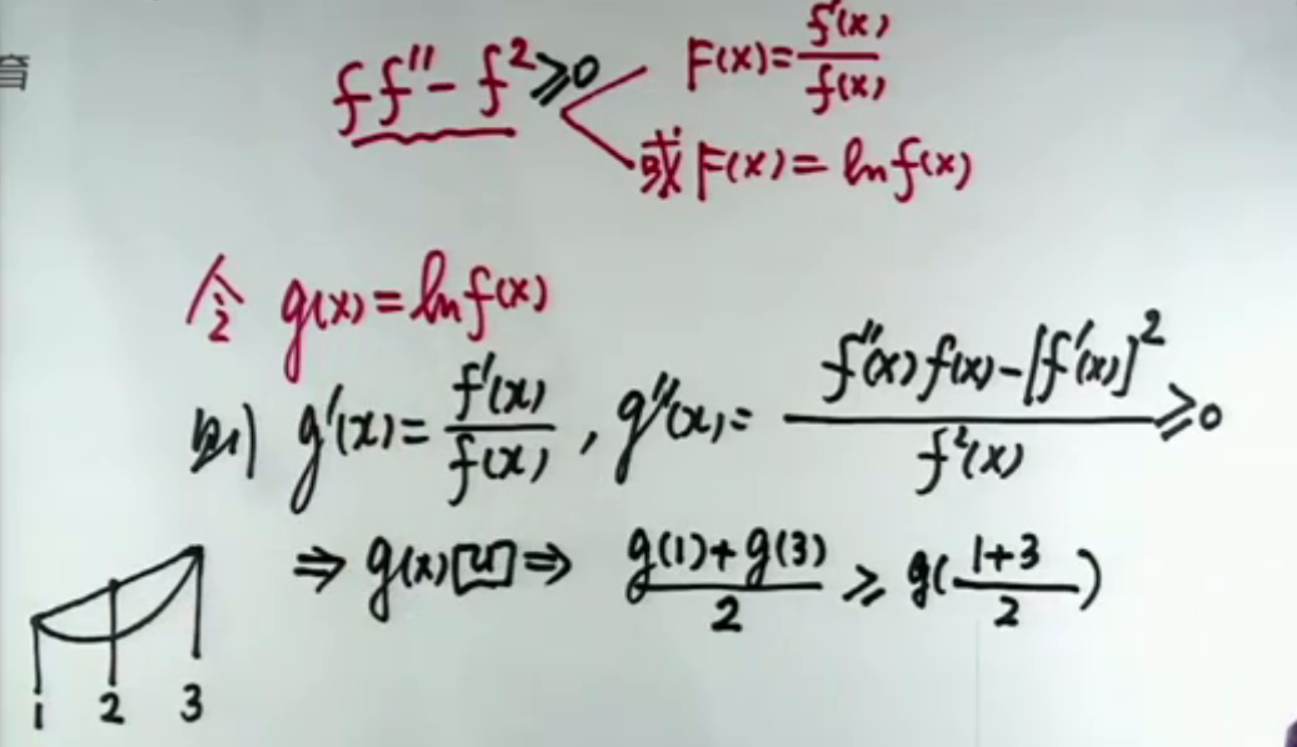 育
ff''-f²≥0
F(x)=f'(x)/f(x)
或F(x)=ln f(x)
令 g(x)=ln f(x)
则 g'(x)=f'(x)/f(x), g''(x)=f''(x)f(x)-[f'(x)]²/f²(x)≥0
⇒g(x)凹⇒ g(1)+g(3)/2 ≥ g(1+3/2)
1 2 3